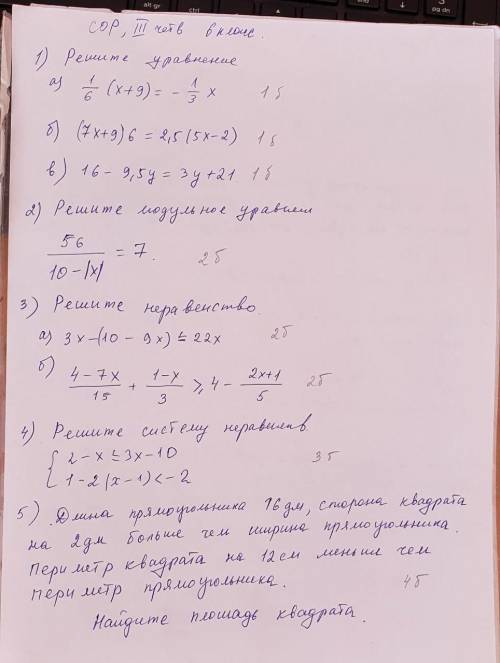 СОР, III четв 6 класс.
1) Решите уравнение
а) 1/6 (x+9) = - 1/3 x 1б
б) (7x+9)6 = 2,5(5x-2) 1б
в) 16 - 9,5y = 3y+21 1б
2) Решите модульное уравнен
56/(10-|x|) = 7. 2б
3) Решите неравенство.
а) 3x-(10 - 9x) ≤ 22x 2б
б) (4-7x)/15 + (1-x)/3 ≥ 4 - (2x+1)/5 2б
4) Решите систему неравенств
{ 2-x ≤ 3x-10
1-2(x-1) < -2 3б
5) Длина прямоугольника 16 дм, сторона квадрата
на 2дм больше чем ширина прямоугольника.
Периметр квадрата на 12см меньше чем
периметр прямоугольника. 4б
Найдите площадь квадрата.